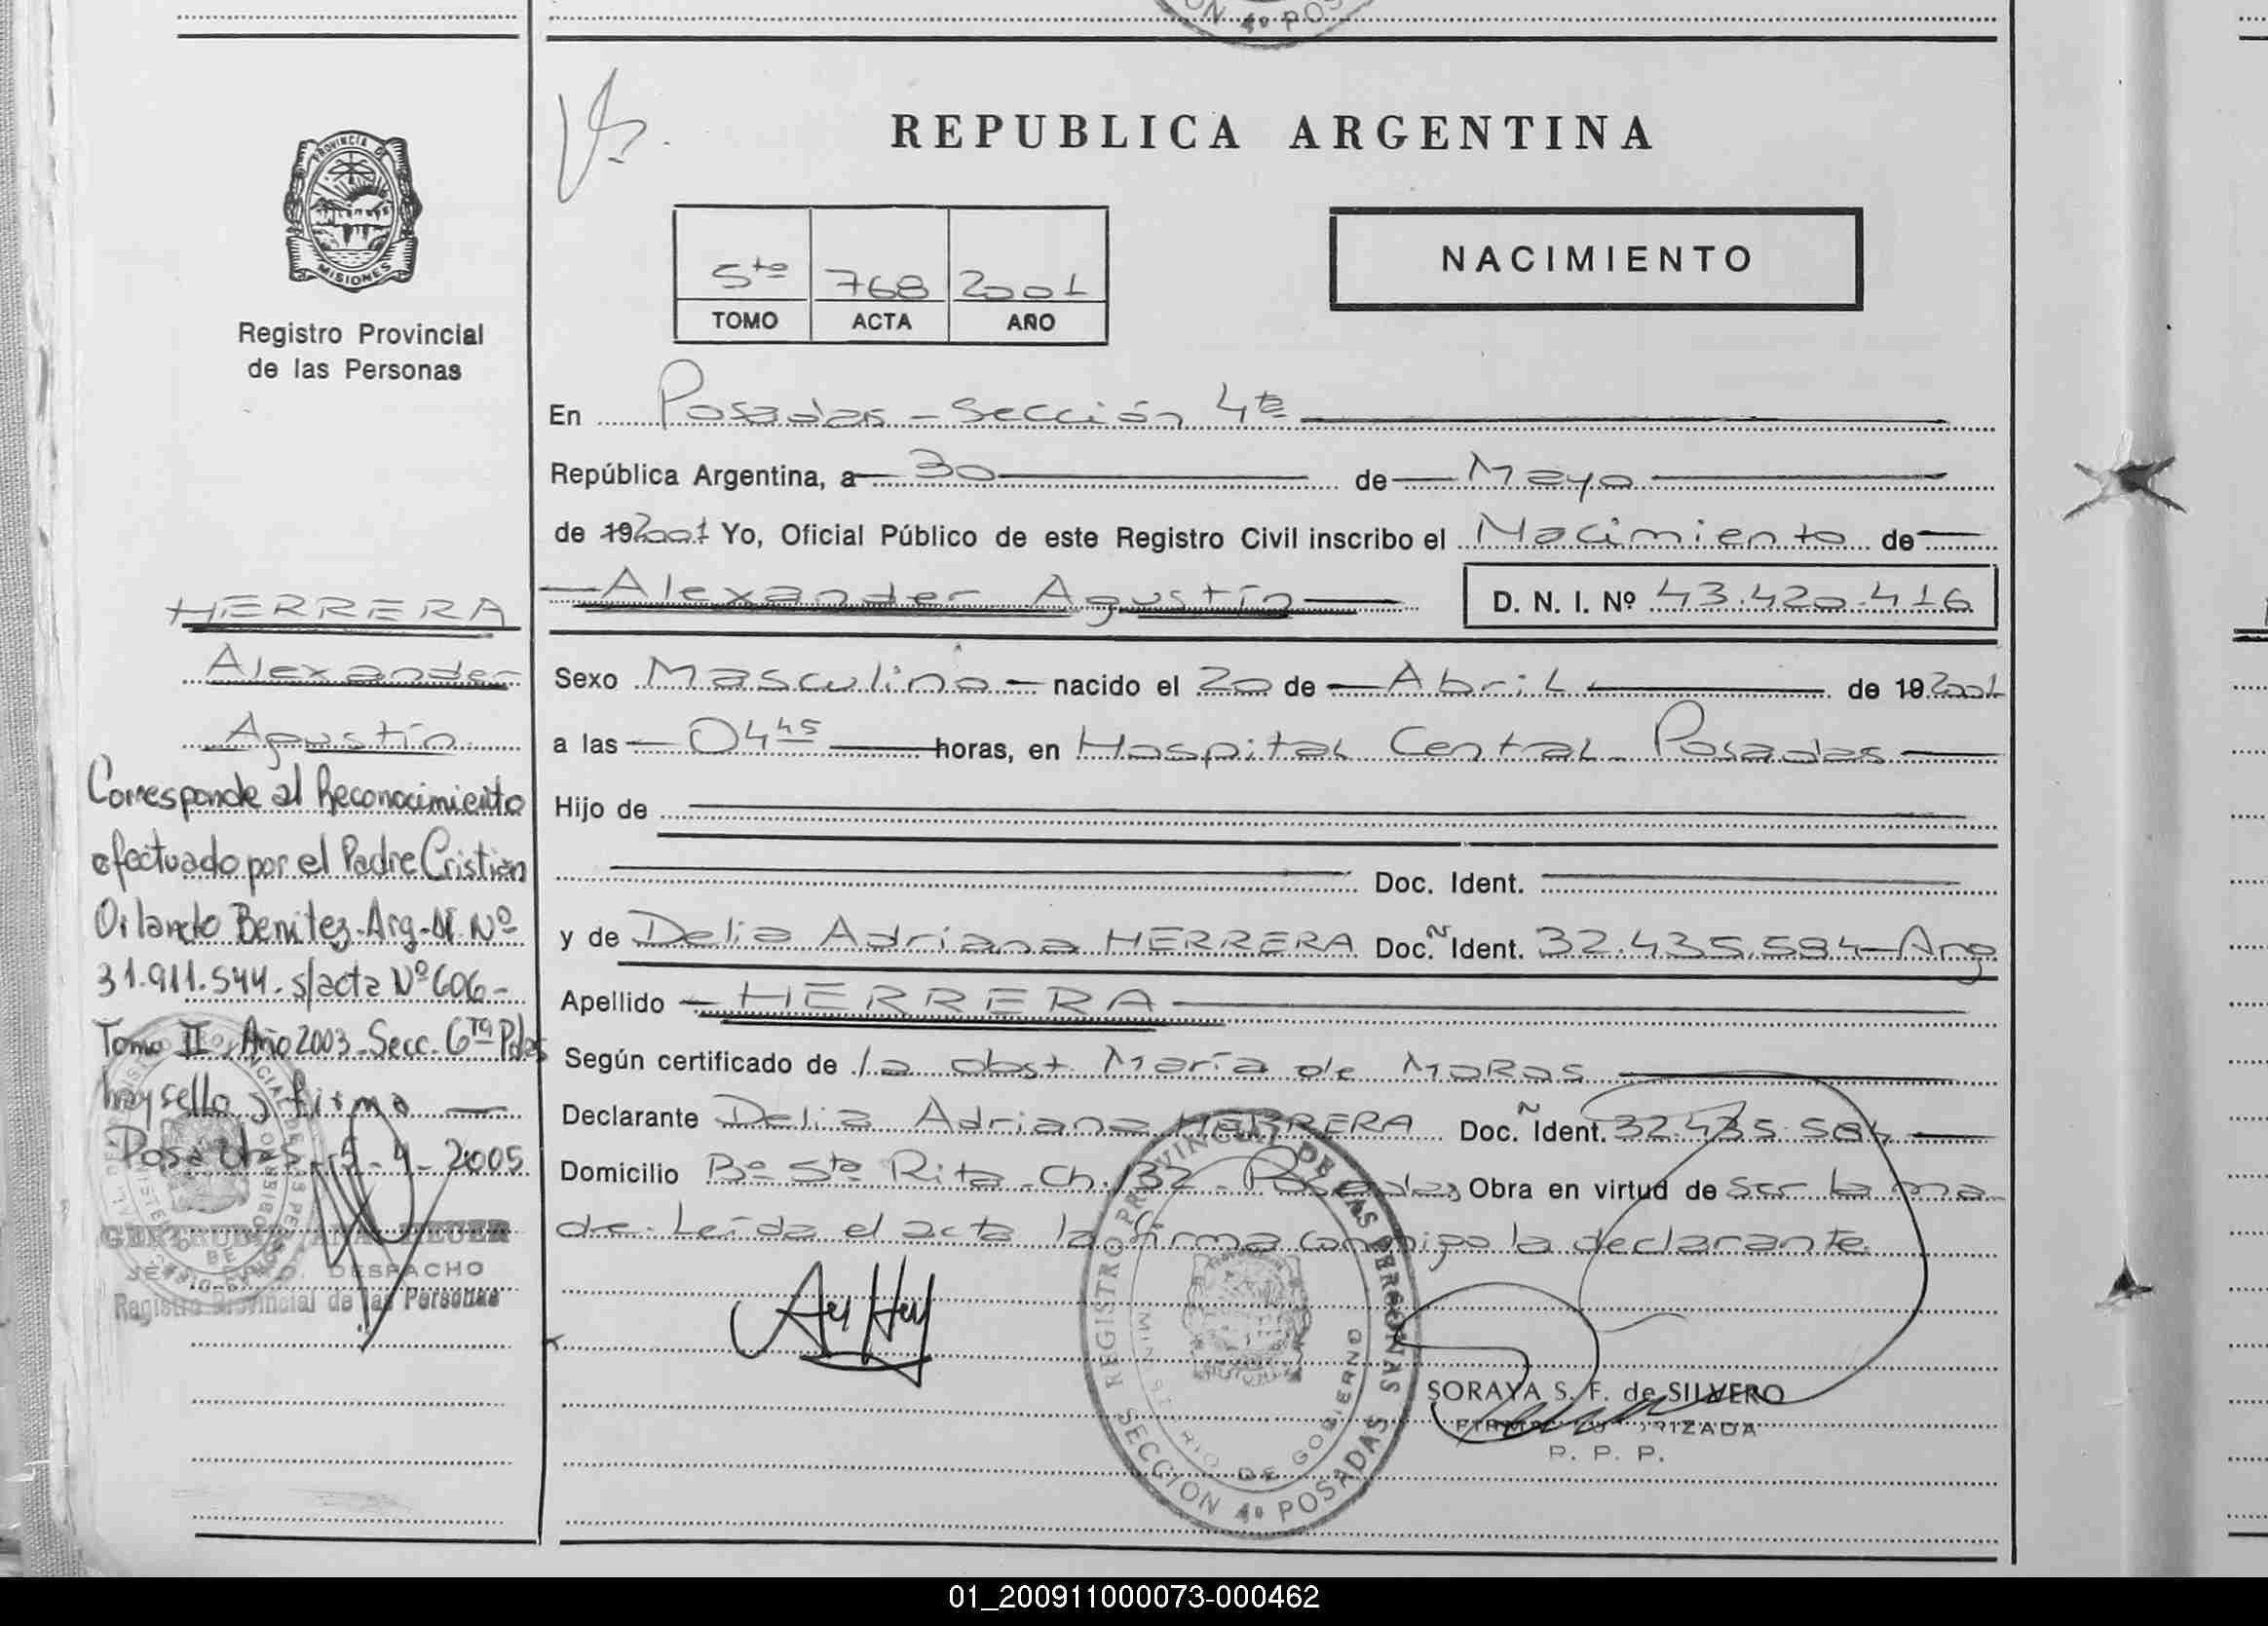 CION 4º POS
PROVINCIA DE
MISIONES
Registro Provincial
de las Personas
HERRERA
Alexander
Agustín
Corresponde al Reconocimiento
efectuado por el Padre Cristian
Orlando Benitez-Arg-DNI Nº
31.911.544. s/acta Nº 606-
Tomo II. Año 2003-Secc. 6ta Pdas
hay sello y firma
Posadas-5-4-2005
JEFE DPTO. DESPACHO
Registro Provincial de las Personas
REPUBLICA ARGENTINA
5to 768 2001
TOMO ACTA AÑO
NACIMIENTO
En Posadas - Sección 4ta
República Argentina, a 30 de Mayo
de 192001 Yo, Oficial Público de este Registro Civil inscribo el Nacimiento de
Alexander Agustín D. N. I. Nº 43.420.416
Sexo Masculino nacido el 20 de Abril de 19 2001
a las 04 45 horas, en Hospital Central Posadas
Hijo de
Doc. Ident.
y de Delia Adriana HERRERA Doc. Ñ Ident. 32.435.584-Arg
Apellido HERRERA
Según certificado de la obst. María de MORAS
Declarante Delia Adriana HERRERA Doc. Ñ Ident. 32.435.584
Domicilio Bº Sta Rita - Ch. 132 - Posadas, Obra en virtud de ser la ma
dre. Leída el acta la firma conmigo la declarante.
REGISTRO PROVINCIAL DE LAS PERSONAS
MINISTERIO DE GOBIERNO
SECCION 4º POSADAS
SORAYA S. F. de SILVERO
FIRMA AUTORIZADA
R. P. P.
01_200911000073-000462